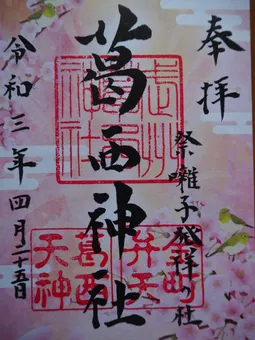 奉拝
祭囃子発祥の社
葛西神社
令和三年四月二十五日
武州
葛西
神社
金町
弁天
葛西
天神